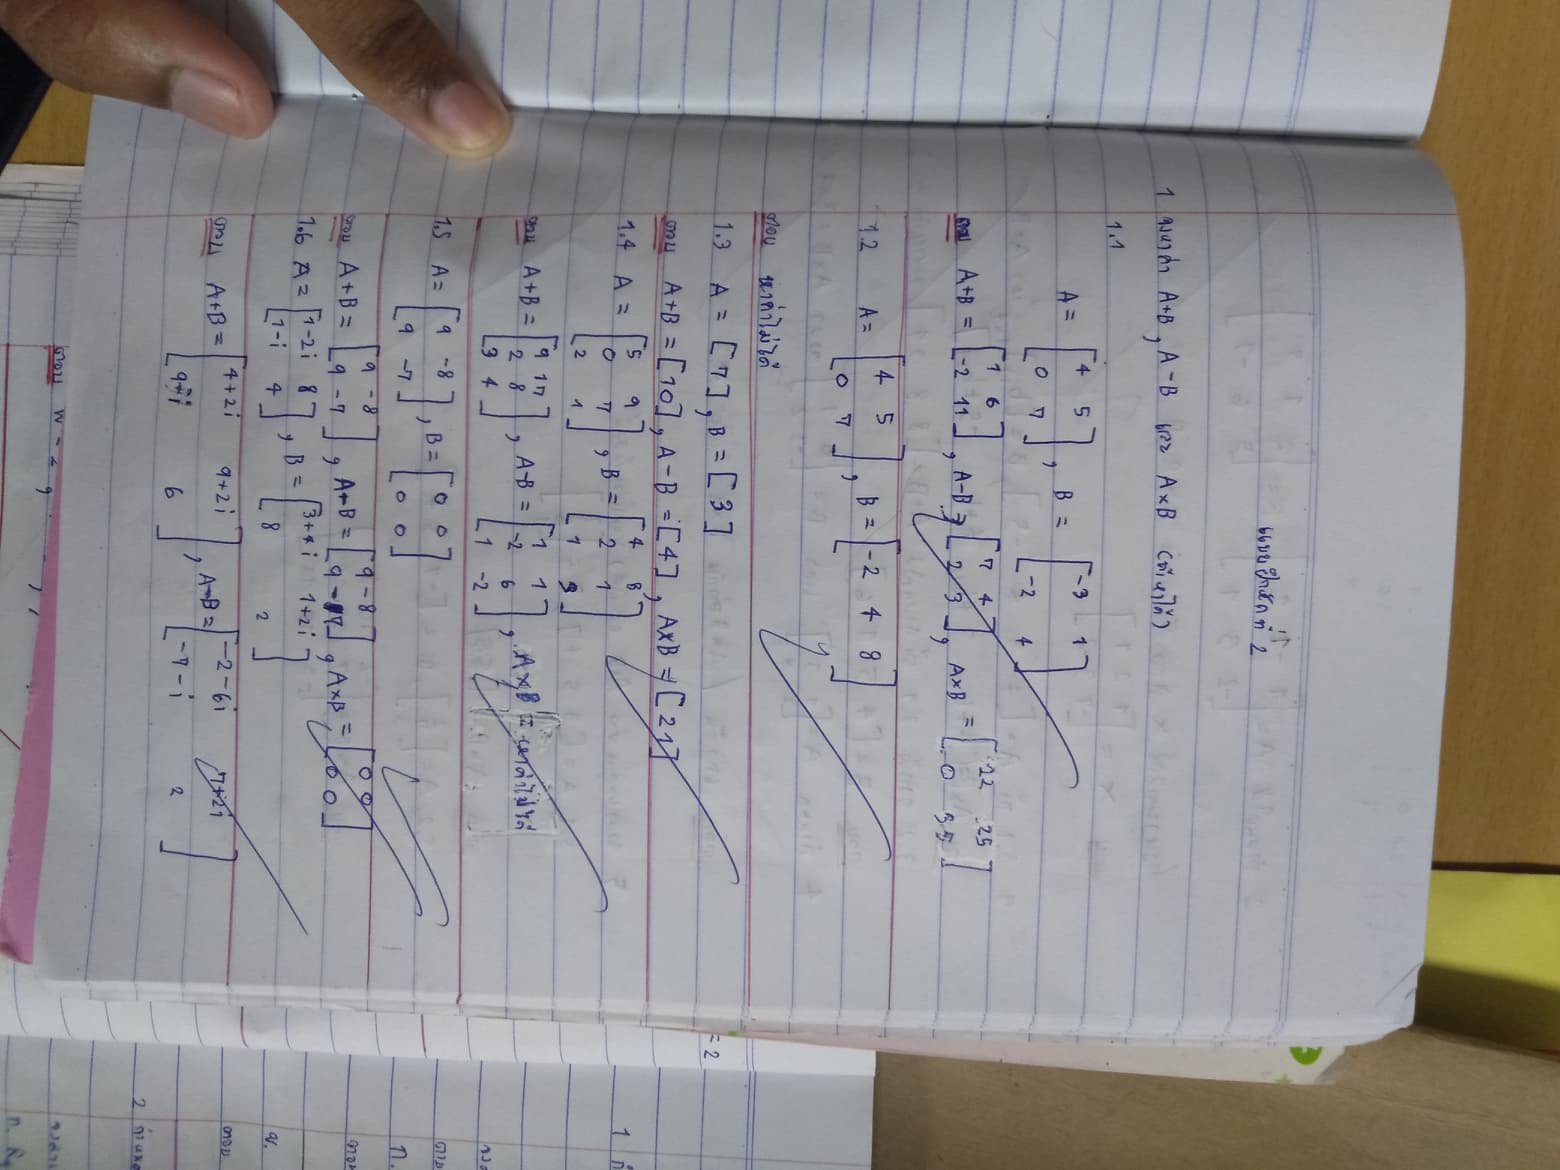 แบบฝึกหัดที่ 2
1 จงหาค่า A+B , A-B และ A×B (ที่หาได้)
1.1
A = [4 5
0 7] , B = [-3 1
-2 4]
ตอบ A+B = [1 6
-2 11] , A-B = [7 4
2 3] , A×B = [-22 25
0 35]
1.2 A = [4 5
0 7] , B = [-2 4 8]
ตอบ หาค่าไม่ได้
1.3 A = [7] , B = [3]
ตอบ A+B = [10] , A-B = [4] , A×B = [21]
1.4 A = [5 9
0 7
2 1] , B = [4 8
2 1
1 3]
ตอบ A+B = [9 17
2 8
3 4] , A-B = [1 1
-2 6
1 -2] , A×B = หาค่าไม่ได้
1.5 A = [9 -8
9 -7] , B = [0 0
0 0]
ตอบ A+B = [9 -8
9 -7] , A-B = [9 -8
9 -7] , A×B = [0 0
0 0]
1.6 A = [1-2i 8
1-i 4] , B = [3+4i 1+2i
8 2]
ตอบ A+B = [4+2i 9+2i
9-i 6] , A-B = [-2-6i 7+2i
-7-i 2]
= 2
1
ก.
ตอบ
ข.
ตอบ
2 กำหนด
ตอบ